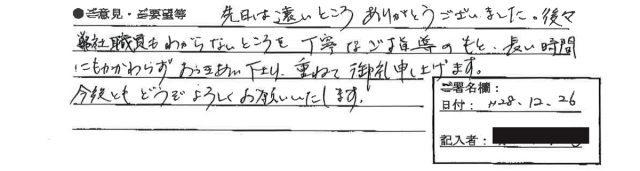 ●ご意見・ご要望等 先日は遠いところ ありがとうございました。後々
弊社職員もわからないところを 丁寧なご指導のもと、長い時間
にもかかわらず おつきあい下り、重ねて御礼申し上げます。
今後とも どうぞよろしくお願いいたします。
ご署名欄：
日付：H28.12.26
記入者：